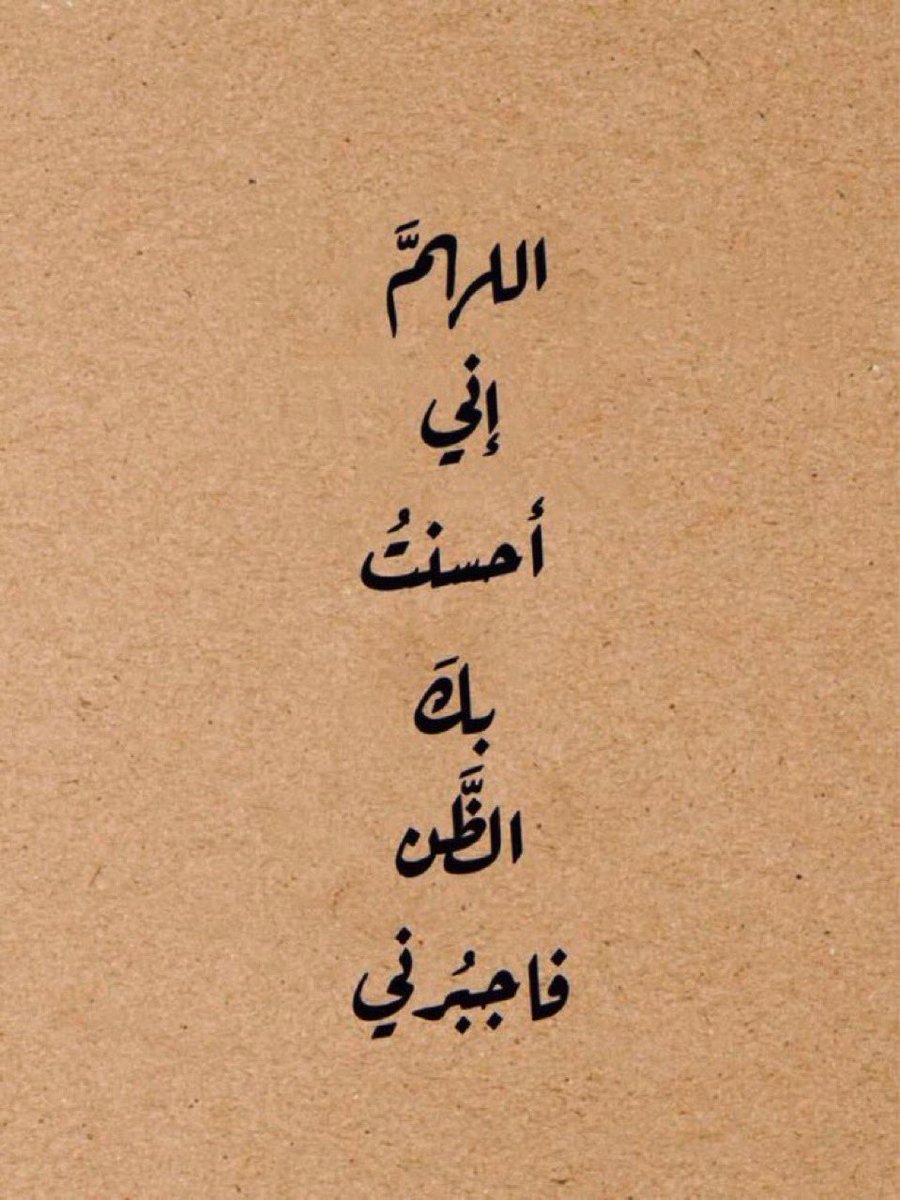 اللهمَّ
إني
أحسنتُ
بكَ
الظَّن
فاجبُرني